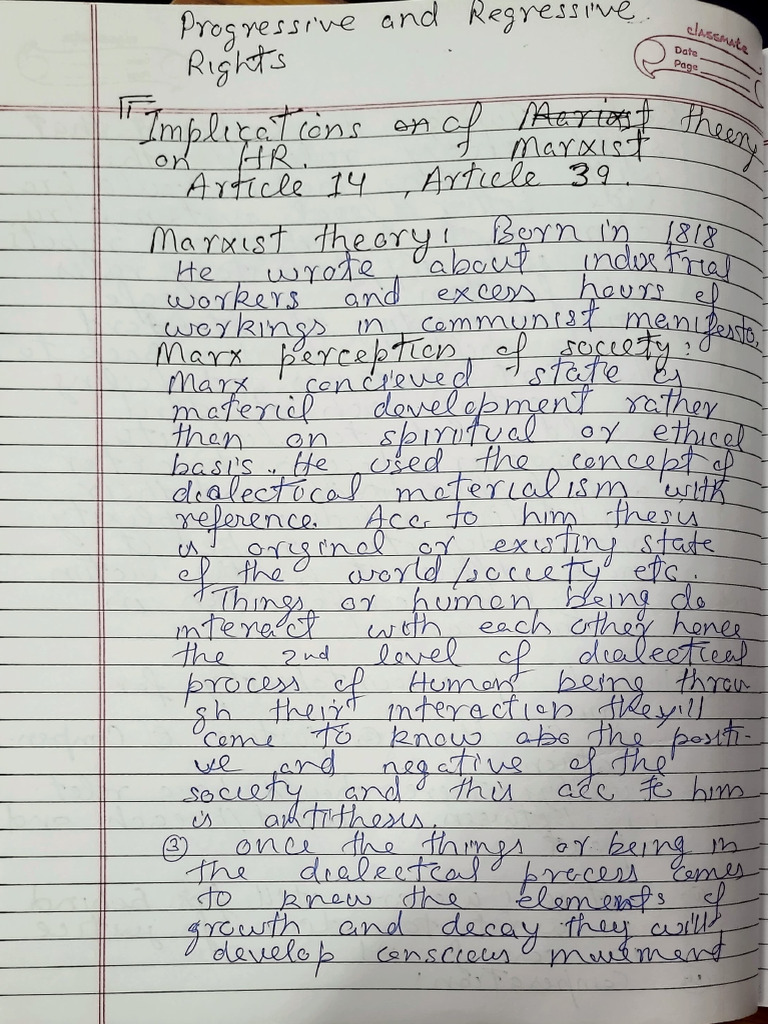 Progressive and Regressive
Rights
classmate
Date
Page
Implications on of Marixst theory
on HR. Marxist
Article 14, Article 39.
Marxist theory: Born in 1818
He wrote about industrial
workers and excess hours of
workings in communist manifesto.
Marx perception of society:
Marx concieved state as
material development rather
than on spiritual or ethical
basis. He used the concept of
dialectical materialism with
reference. Acc. to him thesis
is original or existing state
of the world/society etc.
Things or human being do
interact with each other hence
the 2nd level of dialectical
process of Human being throu
gh their interaction they'll
come to know abo the positi-
ve and negative of the
society and this acc to him
is antithesis.
③ once the things or being in
the dialectcal process comes
to know the elements of
growth and decay they will
develop conscious movement